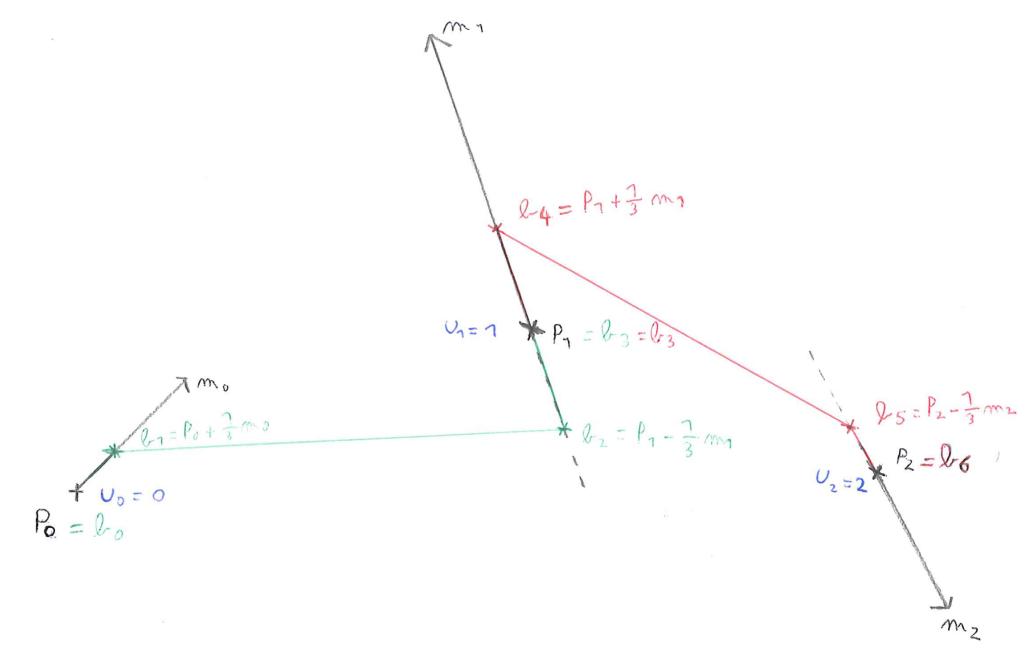 m₁
b₄ = P₁ + 1/3 m₁
u₁ = 1
P₁ = b₃ = b₃
m₀
b₁ = P₀ + 1/3 m₀
b₂ = P₁ - 1/3 m₁
b₅ = P₂ - 1/3 m₂
P₂ = b₆
u₂ = 2
u₀ = 0
P₀ = b₀
m₂